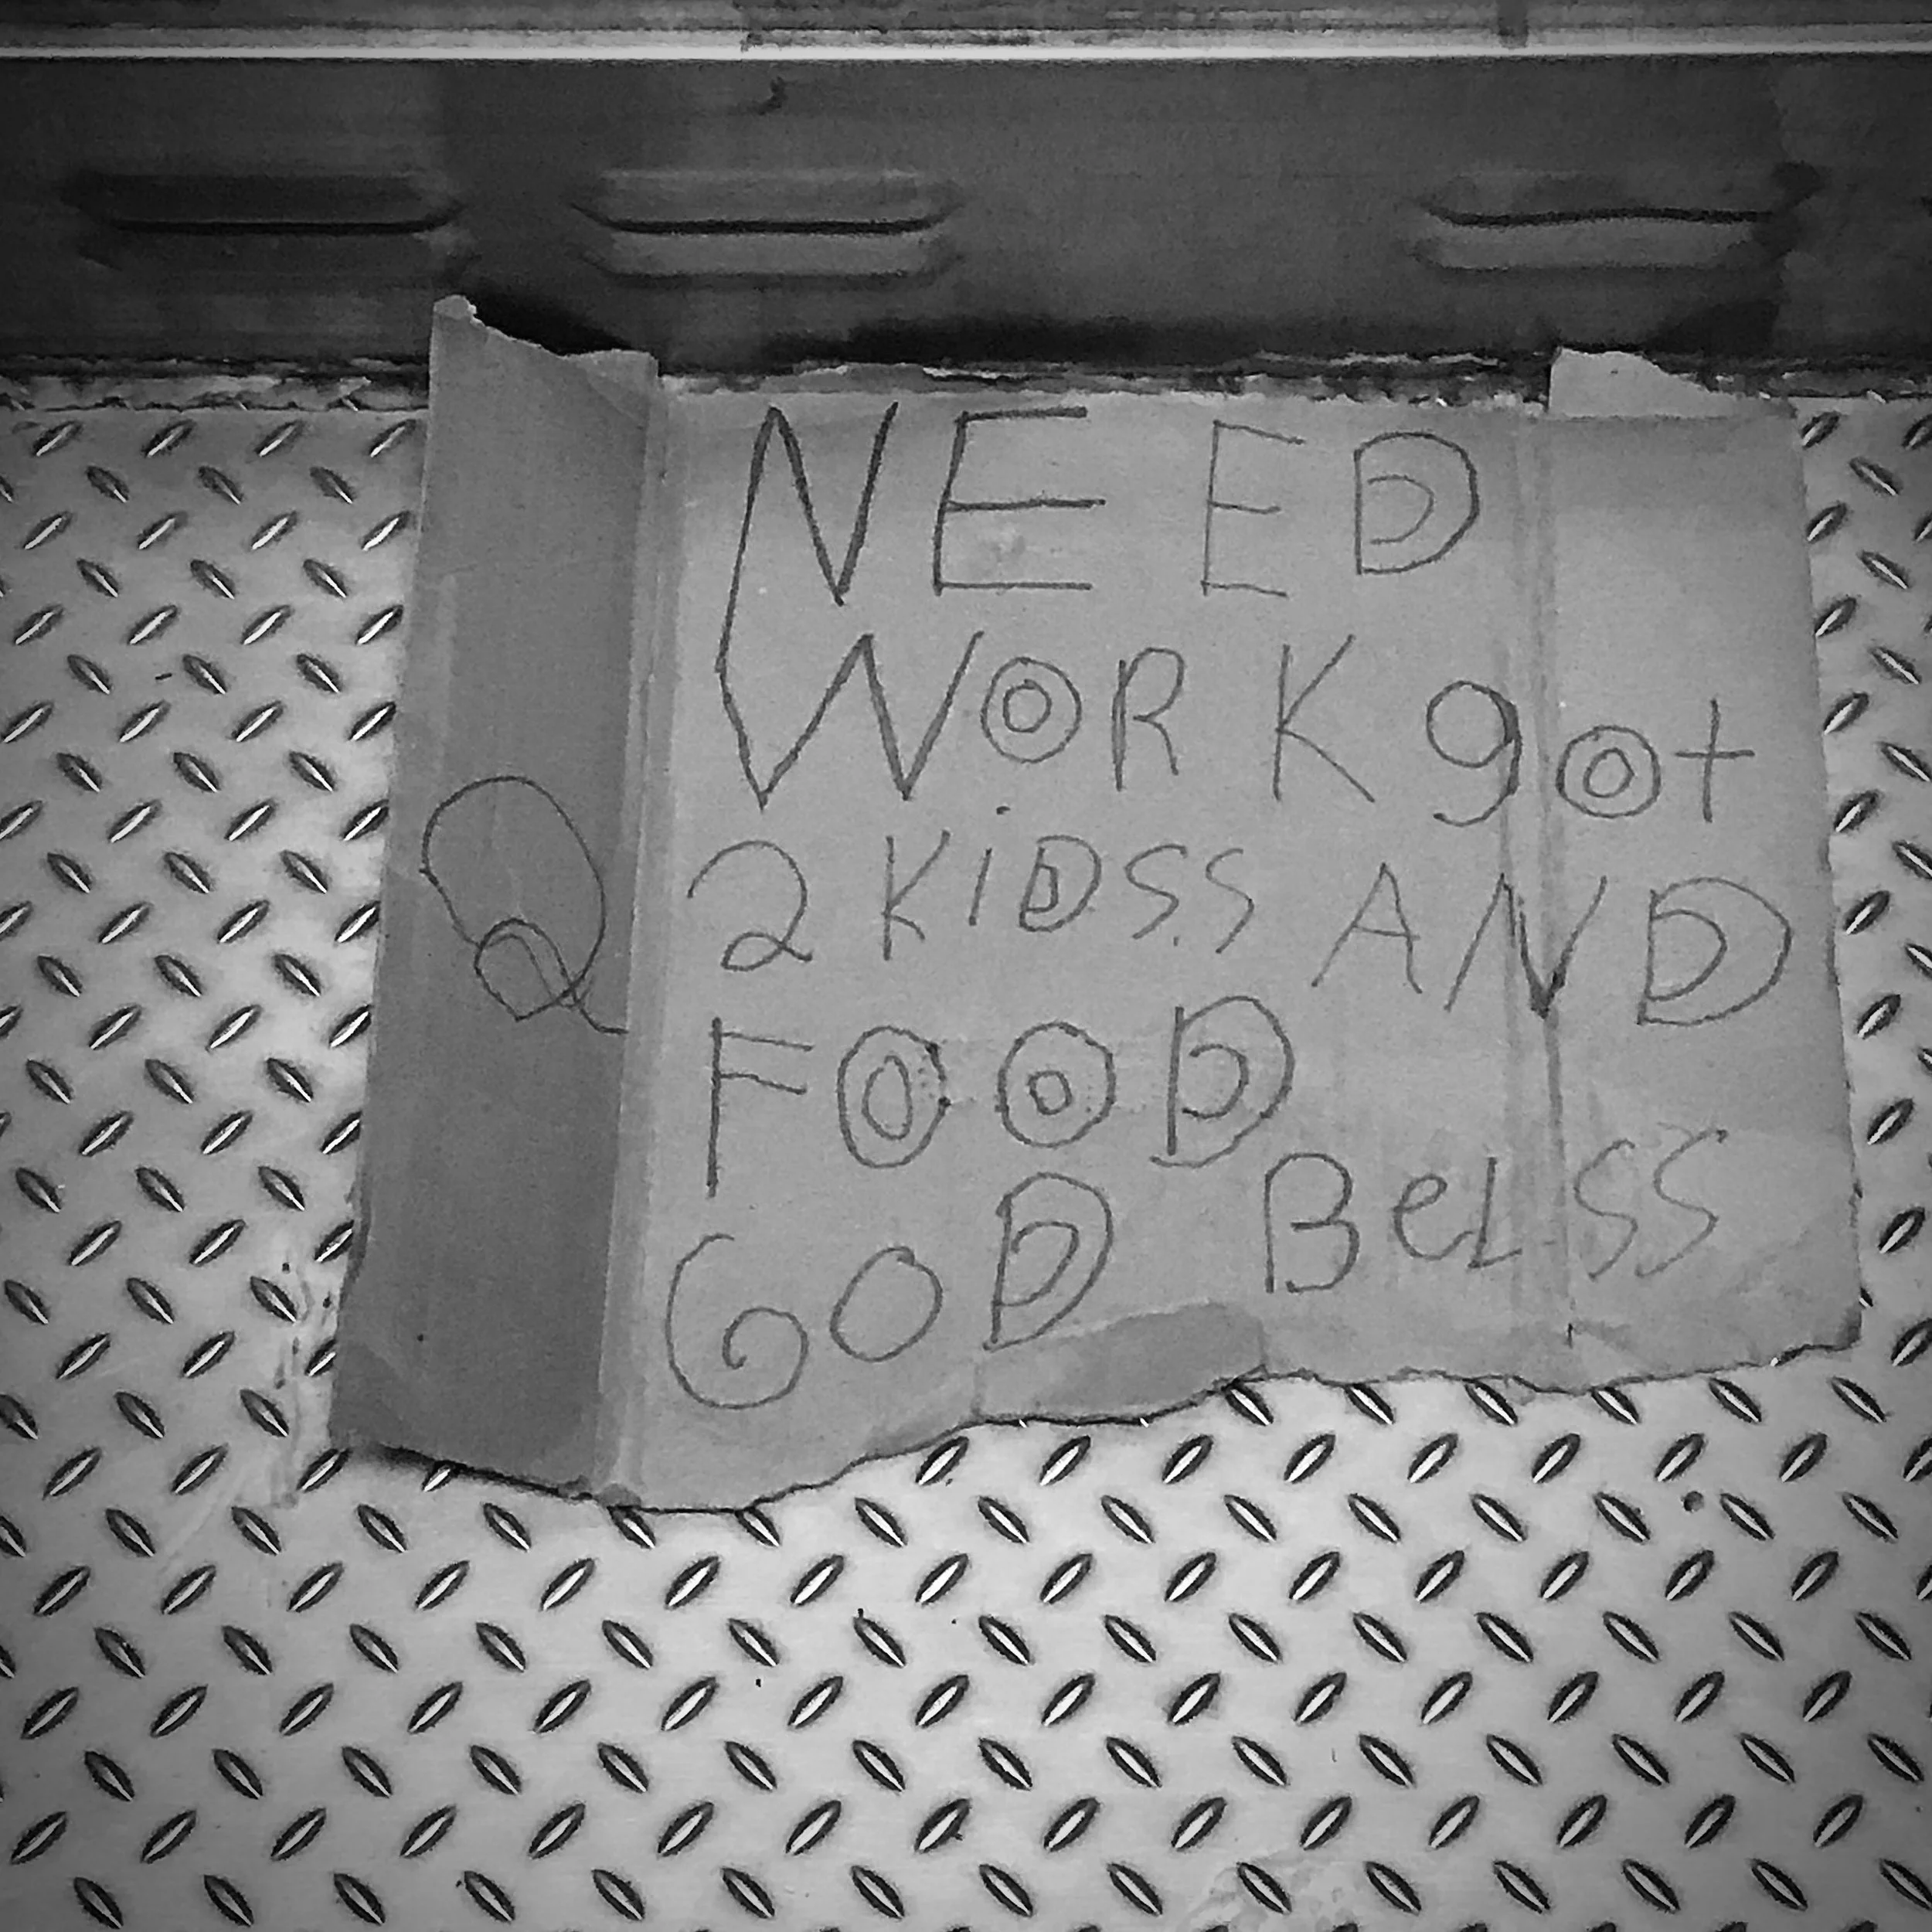 NEED
WORK got
2 KiDSS AND
FOOD
GOD BeLSS